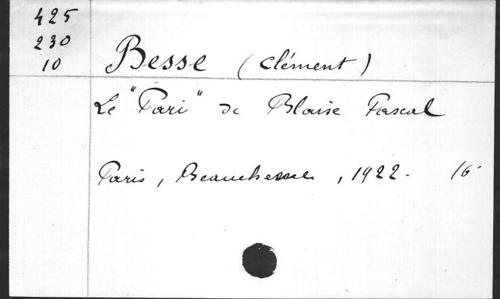 425
230
10
Besse (Clément)
Le "Pari" de Blaise Pascal
Paris, Beauchesne, 1922. 16°